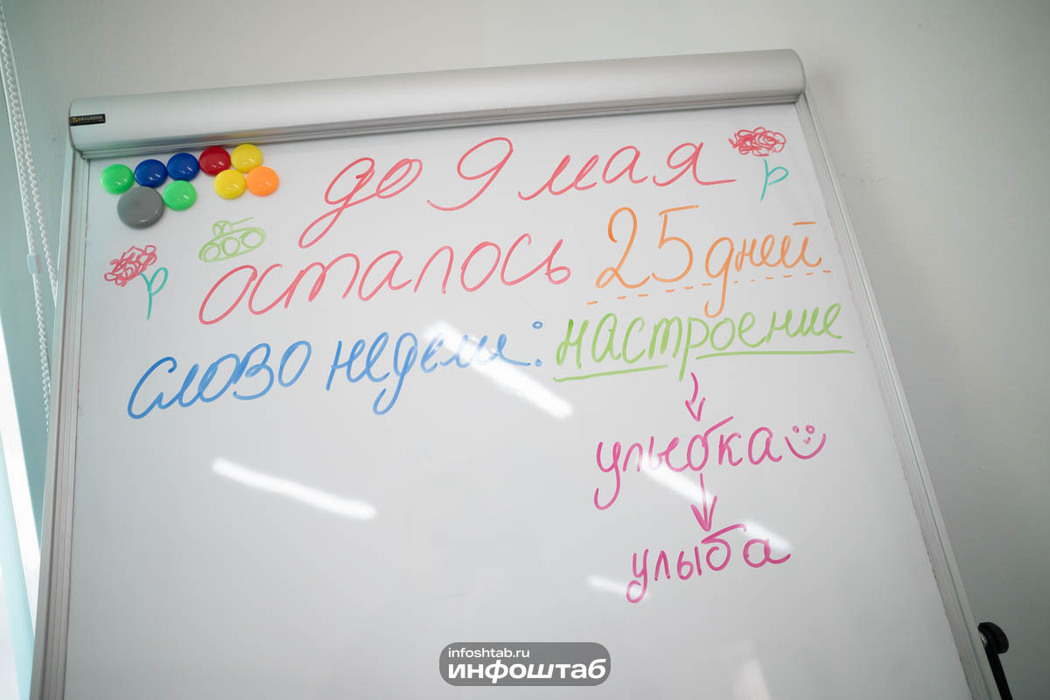 BRAUBERG
до 9 мая
осталось 25 дней
слово недели: настроение
улыбка
улыба
infoshtab.ru
инфоштаб